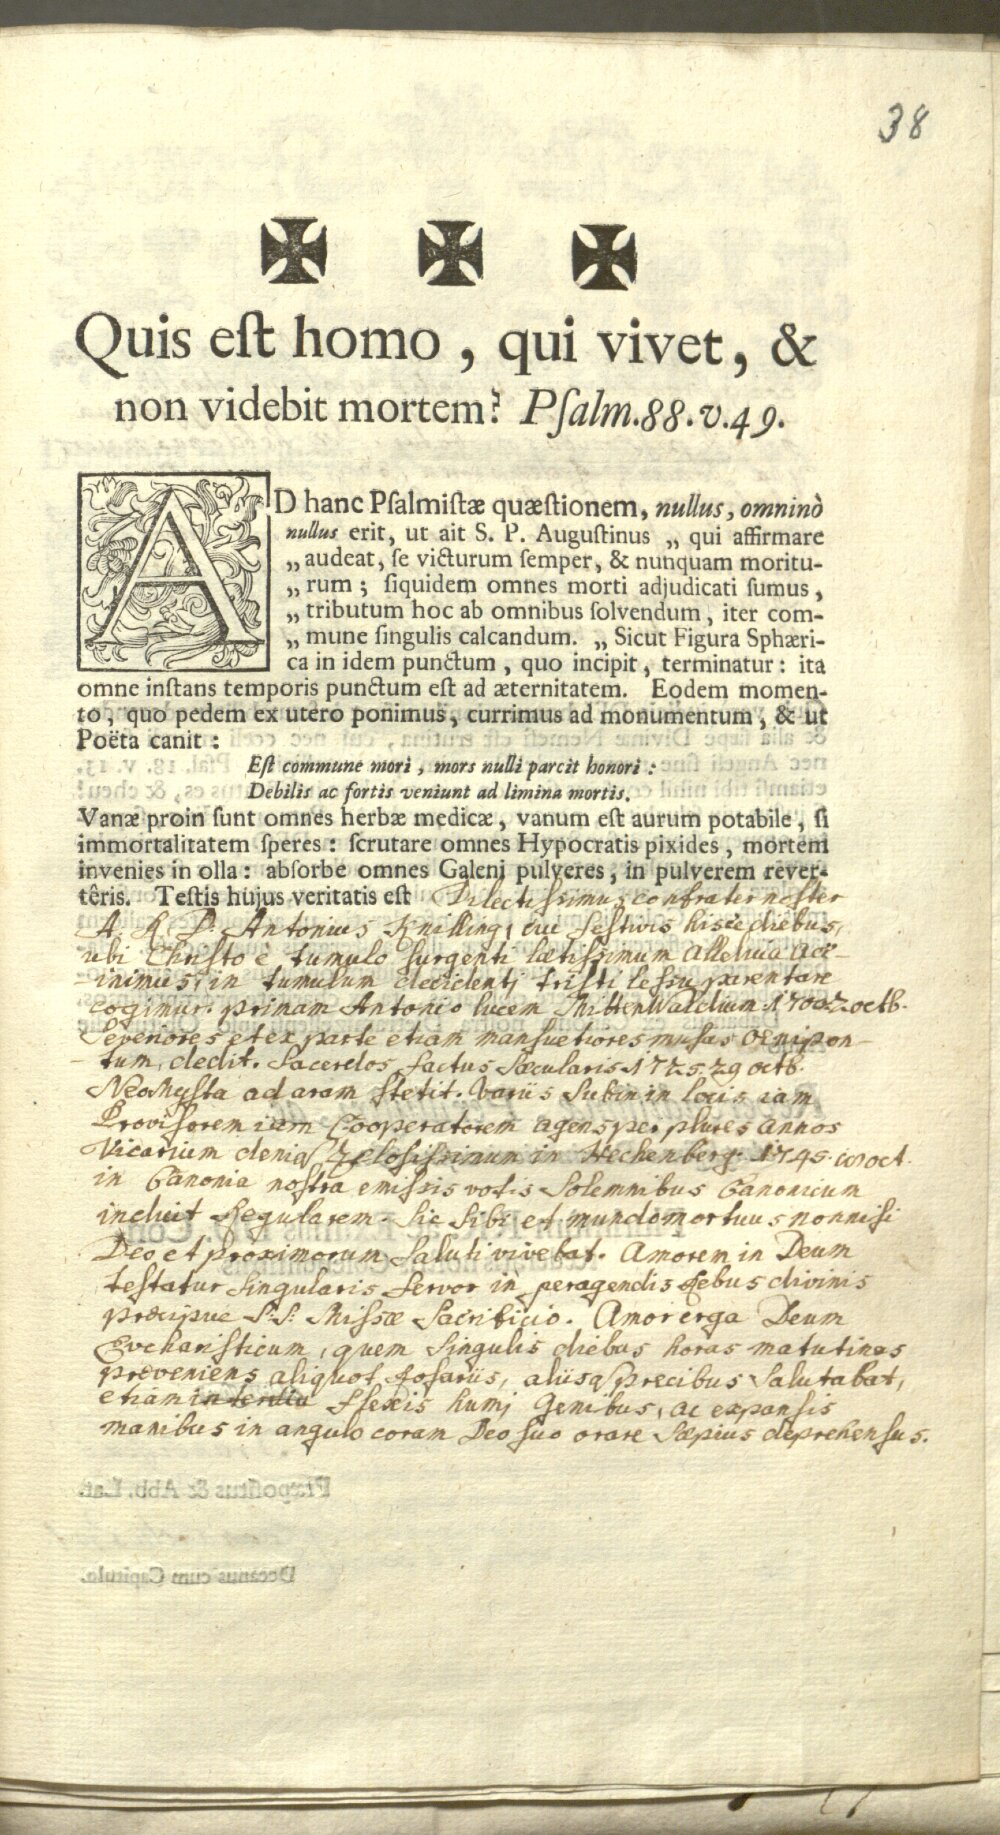 38
Quis eſt homo, qui vivet, &
non videbit mortem? Pſalm.88.v.49.
AD hanc Pſalmiſtæ quæſtionem, nullus, omninò
nullus erit, ut ait S. P. Auguſtinus „ qui affirmare
„ audeat, ſe victurum ſemper, & nunquam moritu-
„ rum; ſiquidem omnes morti adjudicati ſumus,
„ tributum hoc ab omnibus ſolvendum, iter com-
„ mune ſingulis calcandum. „ Sicut Figura Sphæri-
ca in idem punctum, quo incipit, terminatur: ita
omne inſtans temporis punctum eſt ad æternitatem. Eodem momen-
to, quo pedem ex utero ponimus, currimus ad monumentum, & ut
Poëta canit:
Eſt commune mori, mors nulli parcit honori:
Debilis ac fortis veniunt ad limina mortis.
Vanæ proin ſunt omnes herbæ medicæ, vanum eſt aurum potabile, ſi
immortalitatem ſperes: ſcrutare omnes Hypocratis pixides, mortem
invenies in olla: abſorbe omnes Galeni pulveres, in pulverem rever-
têris. Teſtis hujus veritatis eſt Dilectiſsimus confrater noſter
A. R. D. Antonius Knilling, cui feſtivis hisce diebus,
ubi Chriſto è tumulo ſurgenti lætiſsimum Alleluia
in tumulum decidenti triſti leſsu parentare
cogimur. primam Antonio lucem MittenWaldium 1700 2 octb.
Severiores et ex parte etiam manſuetiores muſas Oenipon-
tum, dedit. Sacerdos factus Sæcularis 1725. 29 octb.
Neomyſta ad aram ſtetit. Variis Subin in locis iam
Proviſorem iam Cooperatorem agens per plures annos
Vicarium deniq Zeloſiſsimum in Hechenberg. 1745 oct.
in Canonia noſtra emiſsis votis Solemnibus Canonicum
induit Regularem. Sic Sibi et mundo mortuus nonniſi
Deo et proximorum Saluti vivebat. Amorem in Deum
teſtatur Singularis fervor in peragendis rebus divinis
præcipue S:S: Miſsæ Sacrificio. Amor erga Deum
Evchariſticum, quem Singulis diebus horas matutinas
præveniens aliquot roſariis, aliisq precibus Salutabat,
etiam interdiu flexis humi genibus, ac expanſis
manibus in angulo coram Deo ſuo orare Sæpius deprehenſus.